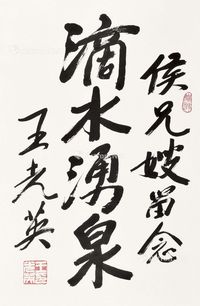 侯兄嫂留念
滴水湧泉
王光英